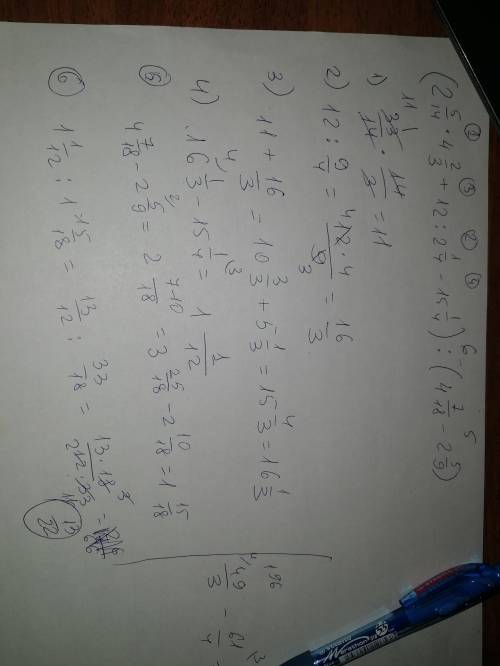 (2 5/14 · 4 2/3 + 12 : 2 1/4 - 15 1/4) : (4 7/18 - 2 5/9)
1) 33/14 · 14/3 = 11
2) 12 : 9/4 = 12·4/9 = 16/3
3) 11 + 16/3 = 10 3/3 + 5 1/3 = 15 4/3 = 16 1/3
4) 16 1/3 - 15 1/4 = 1 1/12
5) 4 7/18 - 2 5/9 = 2 7-10/18 = 3 25/18 - 2 10/18 = 1 15/18
6) 1 1/12 : 1 15/18 = 13/12 : 33/18 = 13·18/12·33 = 13/22
49/3 - 61/4
196